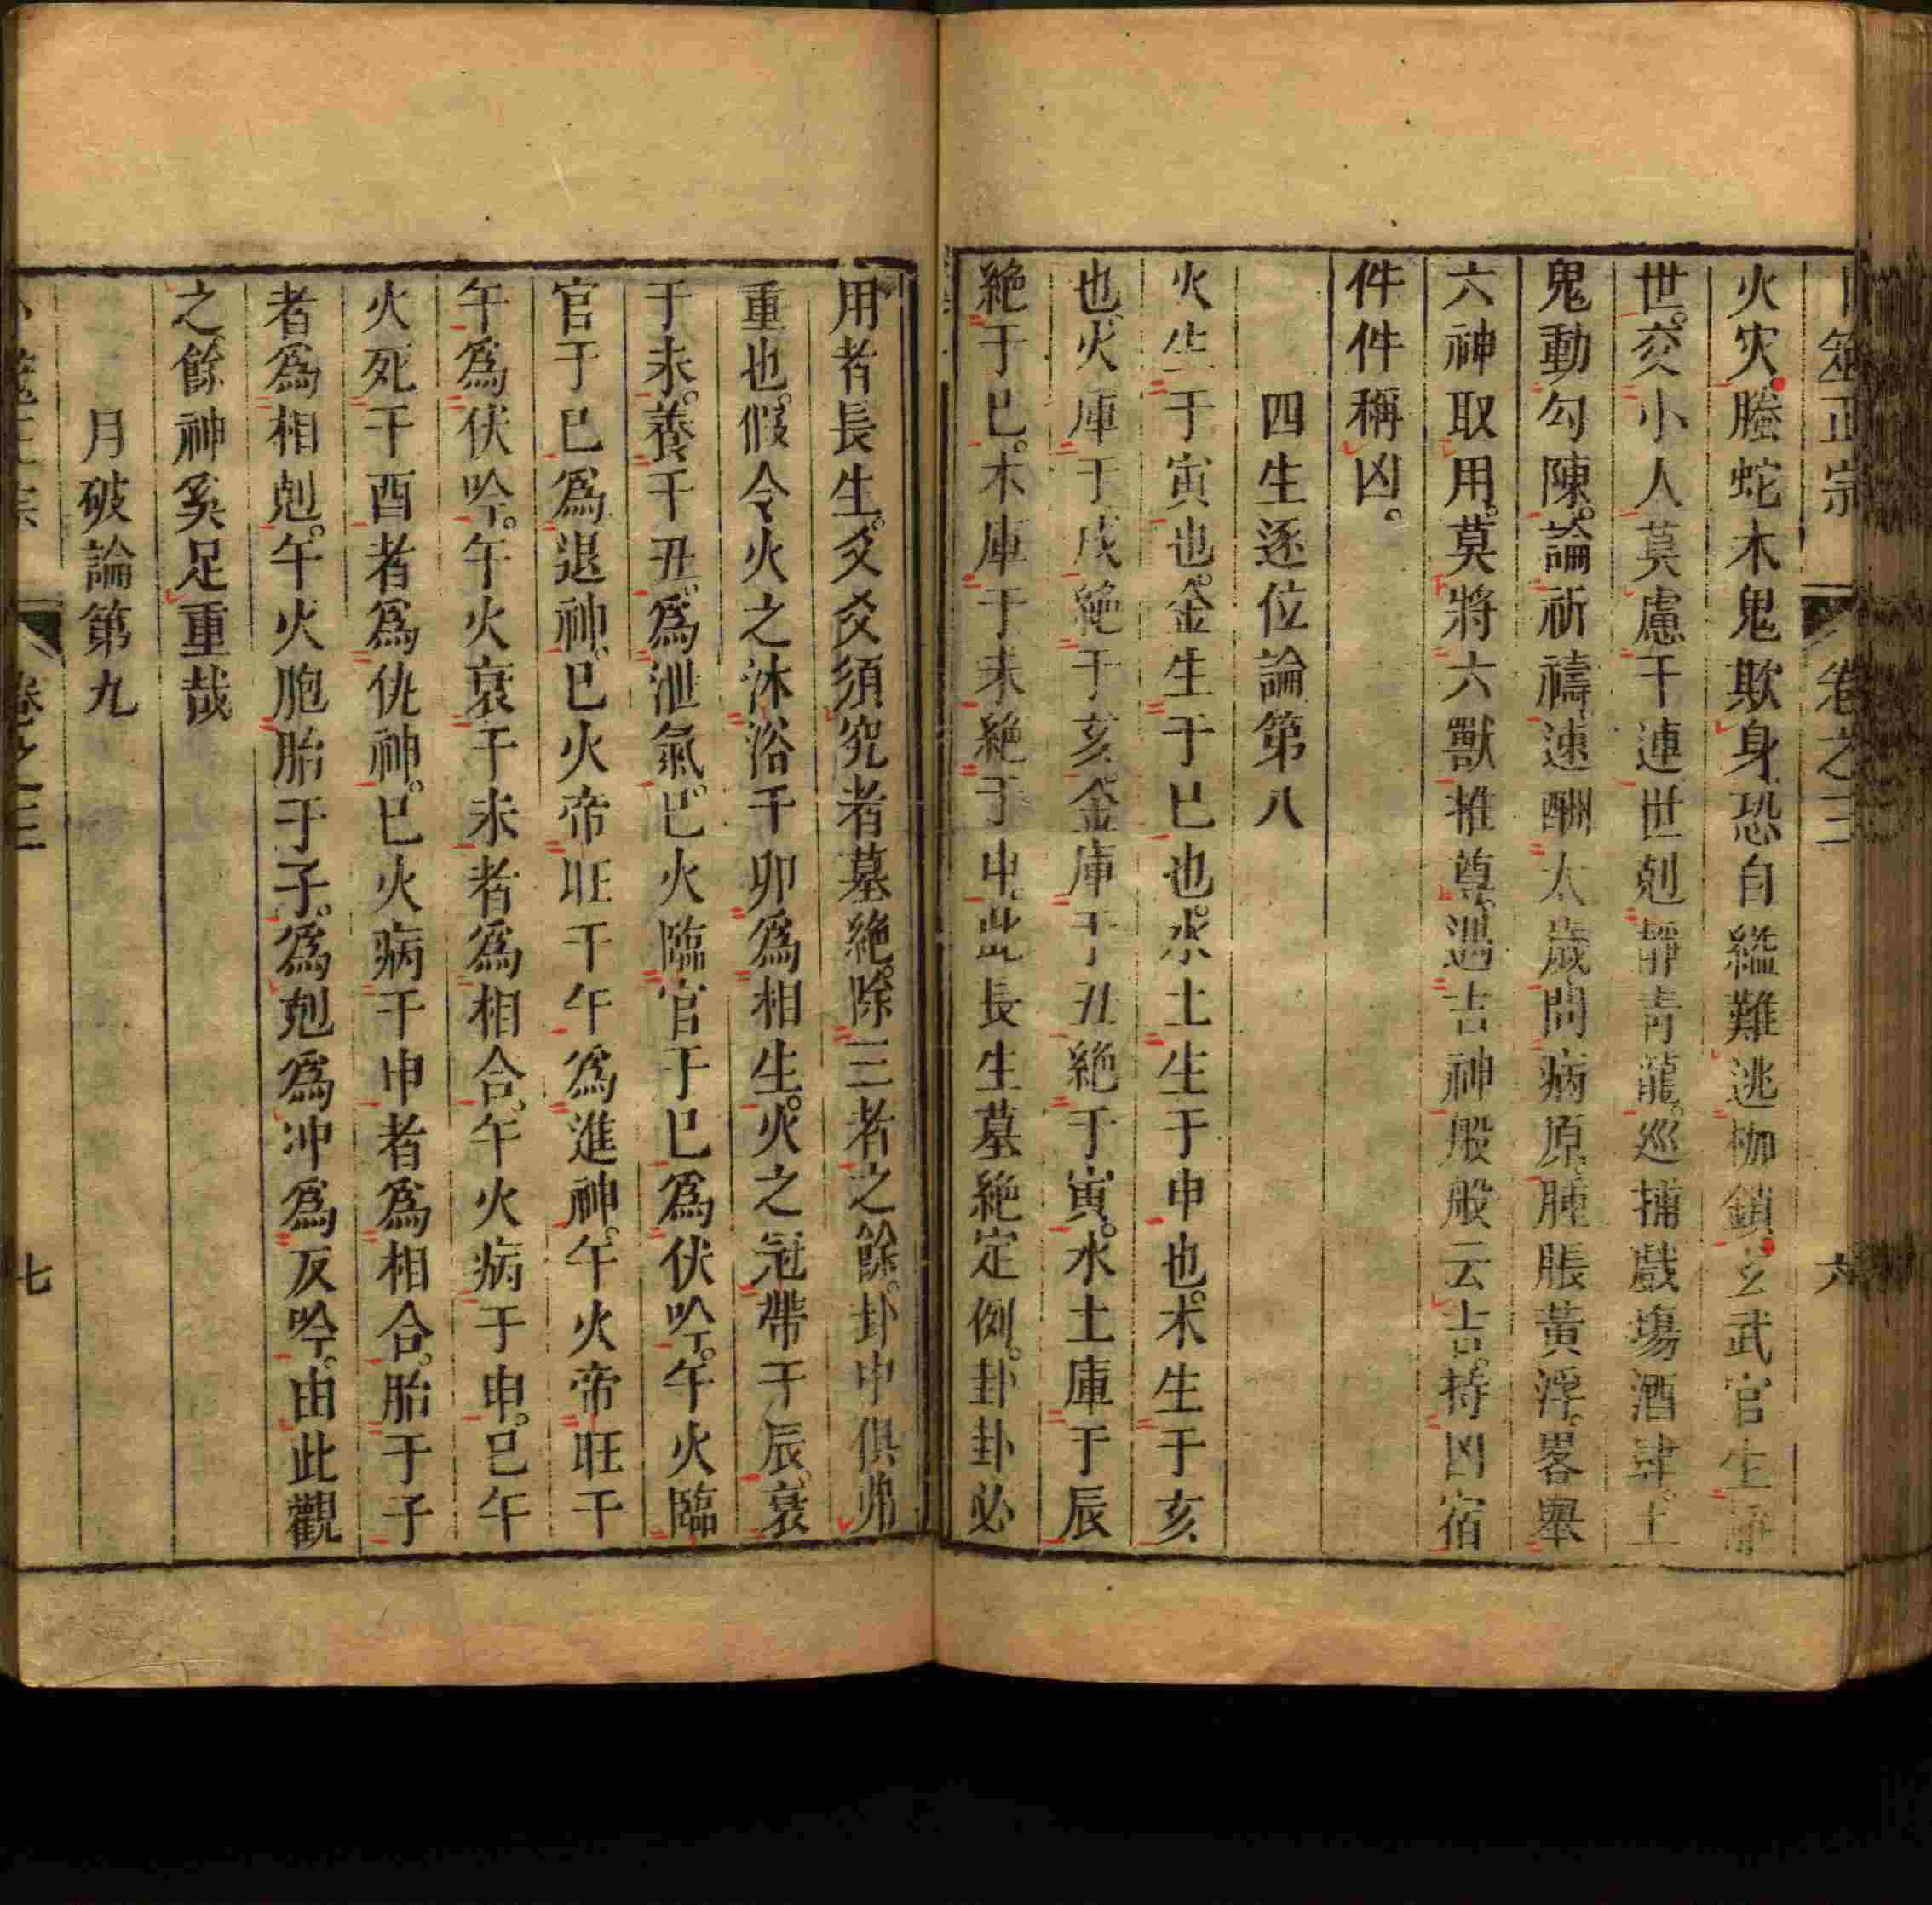 卜筮正宗 卷之三 六
火灾。螣蛇木鬼欺身恐自縊難逃枷鎖。玄武官生
世。交小人莫慮干連世剋靜青龍。巡捕戲塲酒肆。土
鬼動勾陳。論祈禱速酬太歲問病原腫脹黃浮。畧舉
六神取用。莫將六獸推尊。遇吉神般般云吉。持凶宿
件件稱凶。
四生逐位論第八
火生于寅也。金生于巳也。水土生于申也。木生于亥
也。火庫于戌絶于亥。金庫于丑絶于寅。水土庫于辰
絶于巳。木庫于未絶于申。此長生墓絶定例。卦卦必
用者長生。爻爻須究者墓絶。除三者之餘。卦中俱弗
重也。假令火之沐浴于卯爲相生。火之冠帶于辰、衰
于未。養于丑。爲泄氣。巳火臨官于巳爲伏吟。午火臨
官于巳爲退神。巳火帝旺于午爲進神。午火帝旺于
午爲伏吟。午火衰于未者爲相合。午火病于申。巳午
火死于酉者爲仇神。巳火病于申者爲相合。胎于子
者爲相剋。午火胞胎于子。爲剋爲冲爲反吟。由此觀
之餘神奚足重哉
月破論第九
七